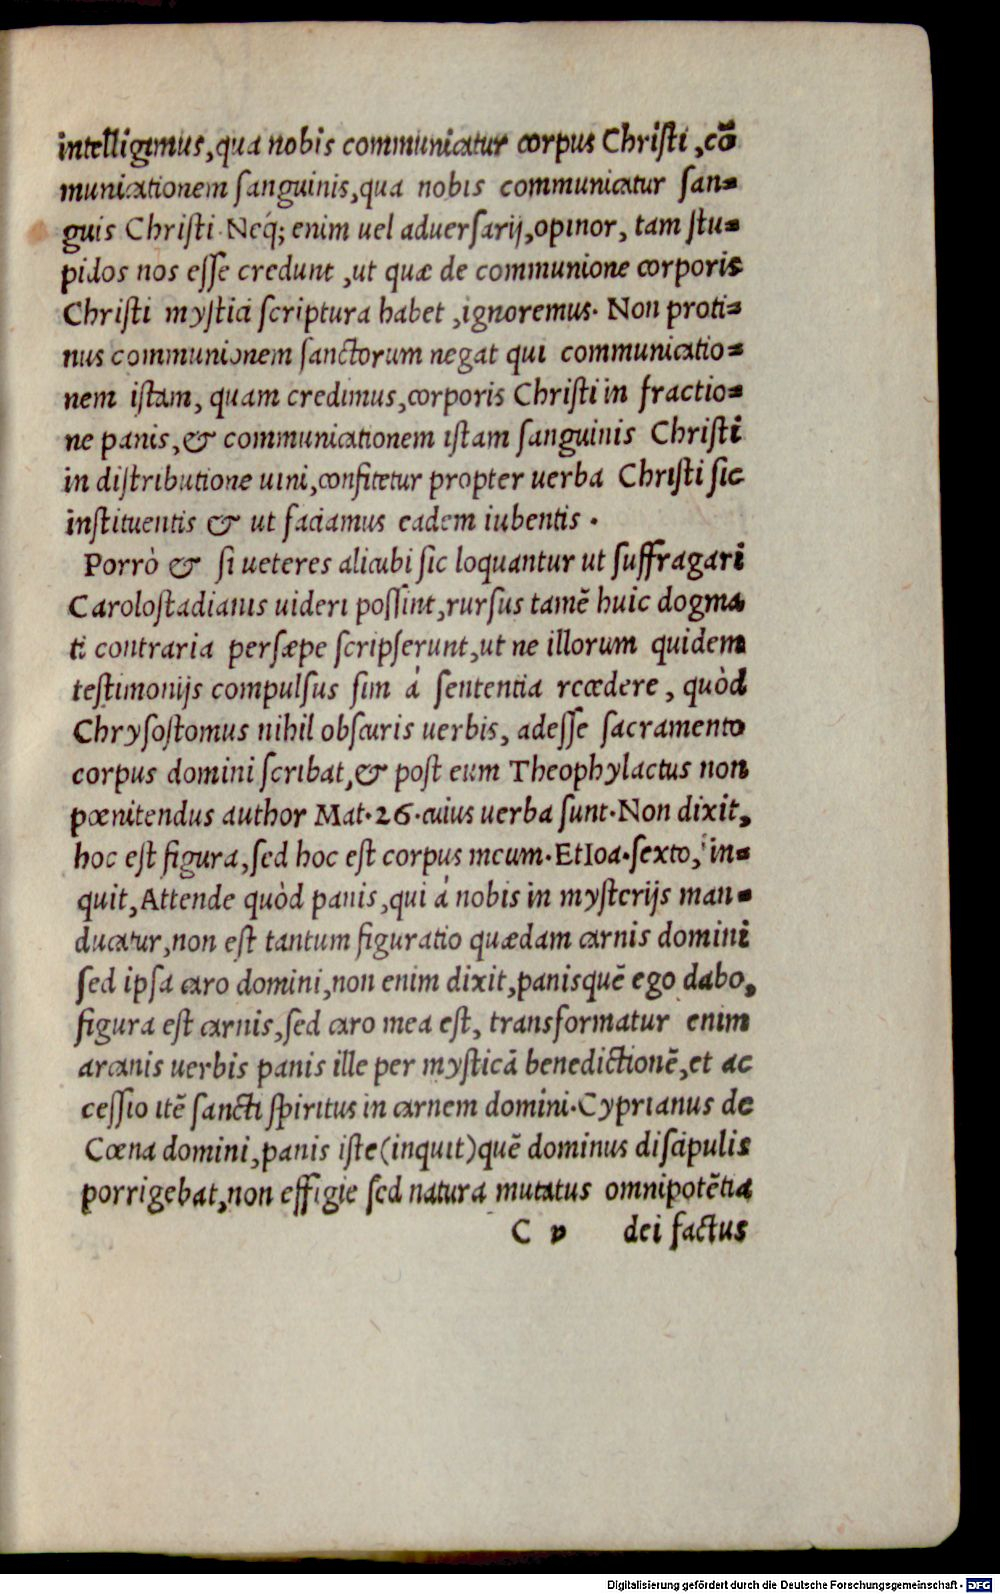 intelligimus, qua nobis communicatur corpus Christi, cõ
municationem ſanguinis, qua nobis communicatur ſan=
guis Christi. Neq́; enim uel aduerſarij, opinor, tam ſtu=
pidos nos eſſe credunt, ut quæ de communione corporis
Chriſti myſtici ſcriptura habet, ignoremus. Non proti=
nus communionem ſanctorum negat qui communicatio=
nem iſtam, quam credimus, corporis Chriſti in fractio=
ne panis, & communicationem iſtam ſanguinis Chriſti
in diſtributione uini, confitetur propter uerba Chriſti ſic
inſtituentis & ut faciamus eadem iubentis.
Porrò & ſi ueteres alicubi ſic loquantur ut ſuffragari
Caroloſtadianis uideri poſſint, rurſus tamẽ huic dogma
ti contraria perſæpe ſcripſerunt, ut ne illorum quidem
teſtimonijs compulſus ſim á ſententia recedere, quòd
Chryſoſtomus nihil obſcuris uerbis, adeſſe ſacramento
corpus domini ſcribat, & poſt eum Theophylactus non
pœnitendus author Mat. 26. cuius uerba ſunt. Non dixit,
hoc eſt figura, ſed hoc eſt corpus meum. Et Ioa. ſexto, in=
quit, Attende quòd panis, qui á nobis in myſterijs man=
ducatur, non eſt tantum figuratio quædam carnis domini
ſed ipſa caro domini, non enim dixit, panis quẽ ego dabo,
figura eſt carnis, ſed caro mea eſt, transformatur enim
arcanis uerbis panis ille per myſticã benedictionẽ, et ac
ceſſio itẽ ſancti ſpiritus in carnem domini. Cyprianus de
Cœna domini, panis iſte (inquit) quẽ dominus diſcipulis
porrigebat, non effigie ſed natura mutatus omnipotẽtia
C v dei factus
Digitalisierung gefördert durch die Deutsche Forschungsgemeinschaft - DFG